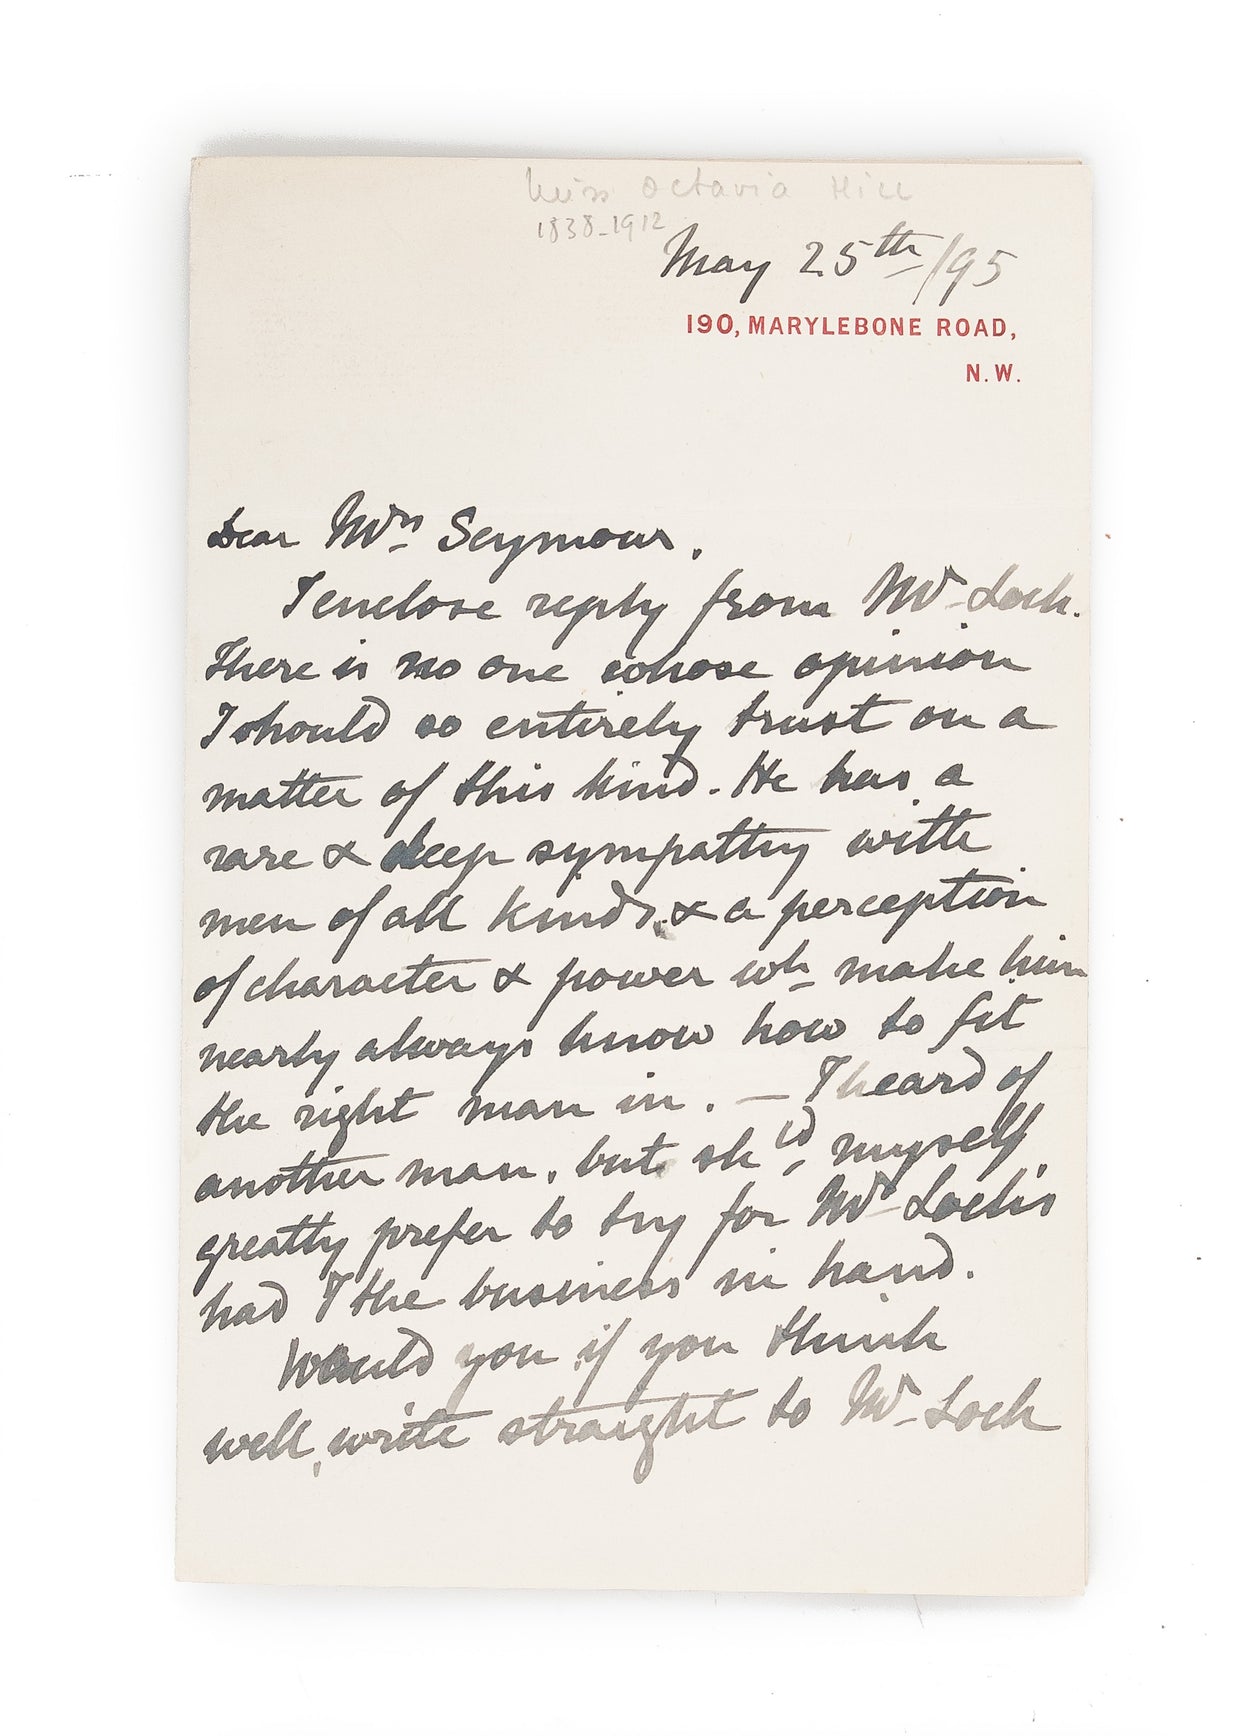 Miss Octavia Hill
1838-1912
May 25th/95
190, MARYLEBONE ROAD,
N.W.
Dear Mrs Seymour,
I enclose reply from Mr Loch.
There is no one whose opinion
I should so entirely trust on a
matter of this kind. He has a
rare & deep sympathy with
men of all kinds, & a perception
of character & power wh make him
nearly always know how to fit
the right man in. — I heard of
another man, but shld myself
greatly prefer to try for Mr Loch's
had I the business in hand.
Would you if you think
well, write straight to Mr Loch